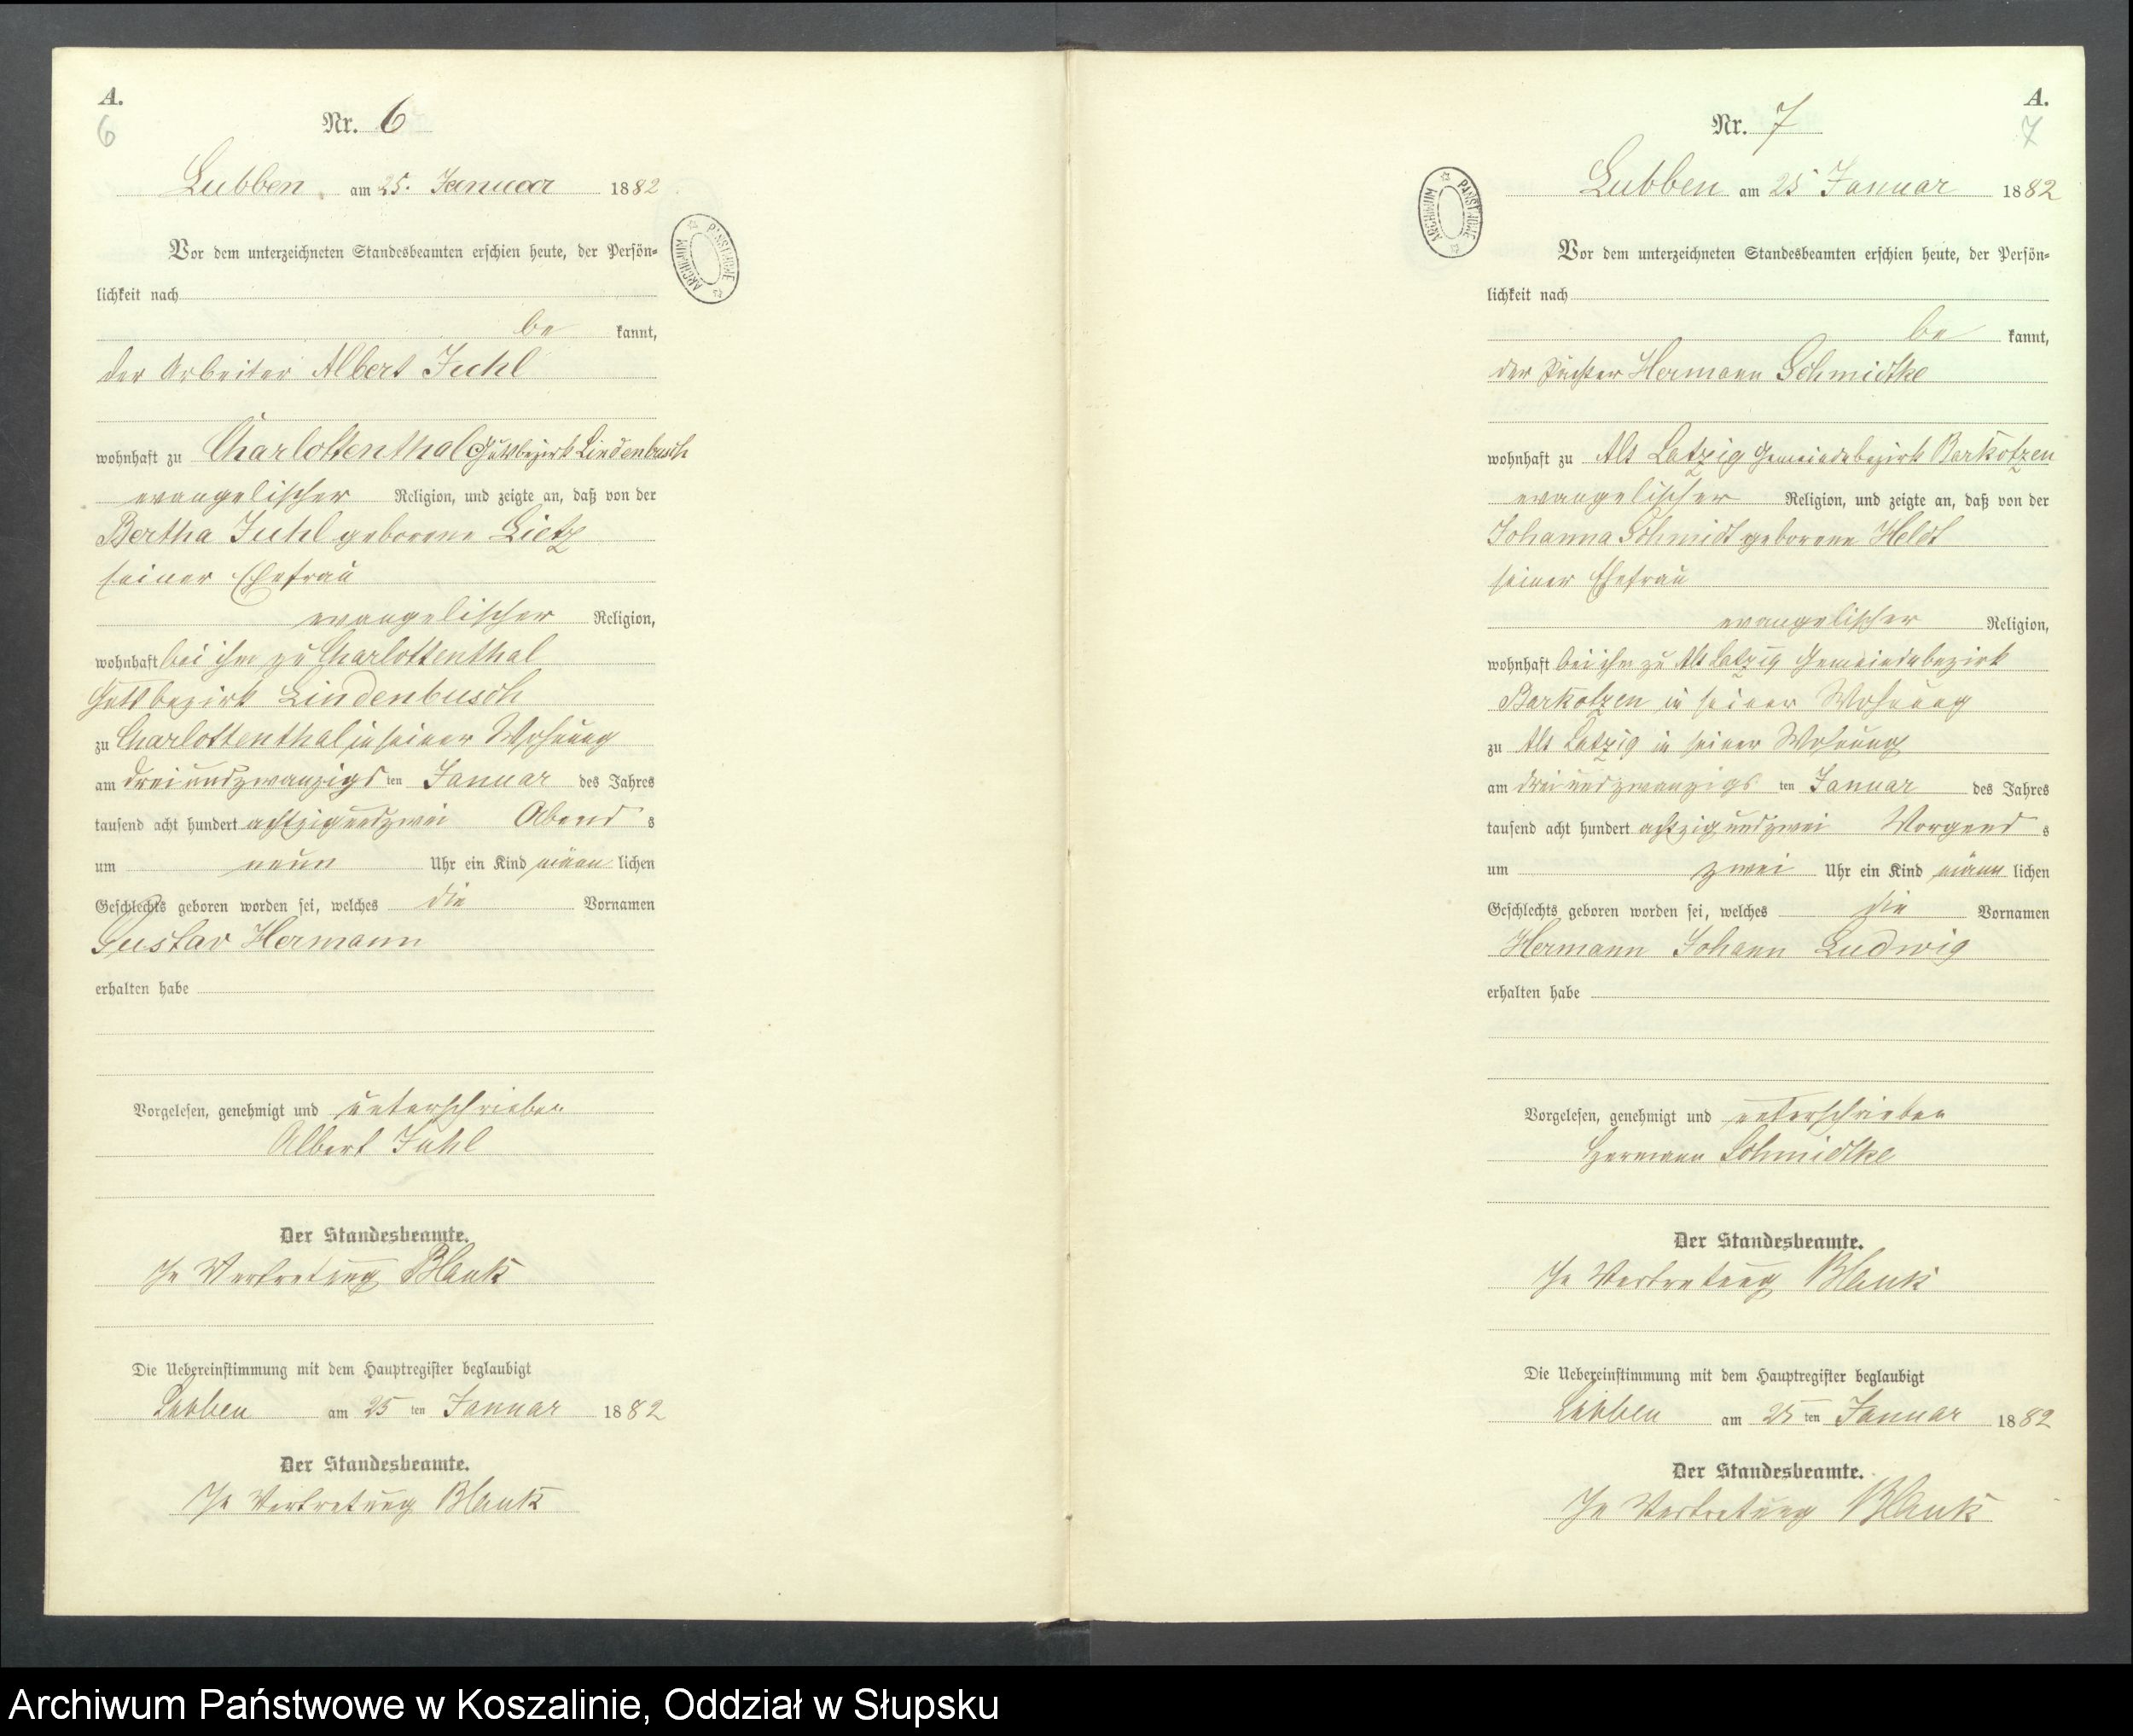 A.
6
Nr. 6
Lubben am 25. Januar 1882
Vor dem unterzeichneten Standesbeamten erschien heute, der Persön=
lichkeit nach
be kannt,
der Arbeiter Albert Juhl
wohnhaft zu Charlottenthal Gutsbezirk Lindenbusch
evangelischer Religion, und zeigte an, daß von der
Bertha Juhl geborene Lietz
seiner Ehefrau
evangelischer Religion,
wohnhaft bei ihm zu Charlottenthal
Gutsbezirk Lindenbusch
zu Charlottenthal in seiner Wohnung
am dreiundzwanzigsten Januar des Jahres
tausend acht hundert achtzig und zwei Abends
um neun Uhr ein Kind männlichen
Geschlechts geboren worden sei, welches die Vornamen
Gustav Hermann
erhalten habe
Vorgelesen, genehmigt und unterschrieben
Albert Juhl
Der Standesbeamte.
In Vertretung Blank
Die Uebereinstimmung mit dem Hauptregister beglaubigt
Lubben am 25 ten Januar 1882
Der Standesbeamte.
In Vertretung Blank
ARCHIWUM PAŃSTWOWE
A.
7
Nr. 7
Lubben am 25 Januar 1882
Vor dem unterzeichneten Standesbeamten erschien heute, der Persön=
lichkeit nach
be kannt,
der Hermann Schmidtke
wohnhaft zu Alt Latzig Gemeindebezirk Barkotzen
evangelischer Religion, und zeigte an, daß von der
Johanna Schmidt geborene Heldt
seiner Ehefrau
evangelischer Religion,
wohnhaft bei ihm zu Alt Latzig Gemeindebezirk
Barkotzen in seiner Wohnung
zu Alt Latzig in seiner Wohnung
am dreiundzwanzigsten Januar des Jahres
tausend acht hundert achtzig und zwei Morgends
um zwei Uhr ein Kind männlichen
Geschlechts geboren worden sei, welches die Vornamen
Hermann Johann Ludwig
erhalten habe
Vorgelesen, genehmigt und unterschrieben
Hermann Schmidtke
Der Standesbeamte.
In Vertretung Blank
Die Uebereinstimmung mit dem Hauptregister beglaubigt
Lubben am 25 ten Januar 1882
Der Standesbeamte.
In Vertretung Blank
ARCHIWUM PAŃSTWOWE
Archiwum Państwowe w Koszalinie, Oddział w Słupsku